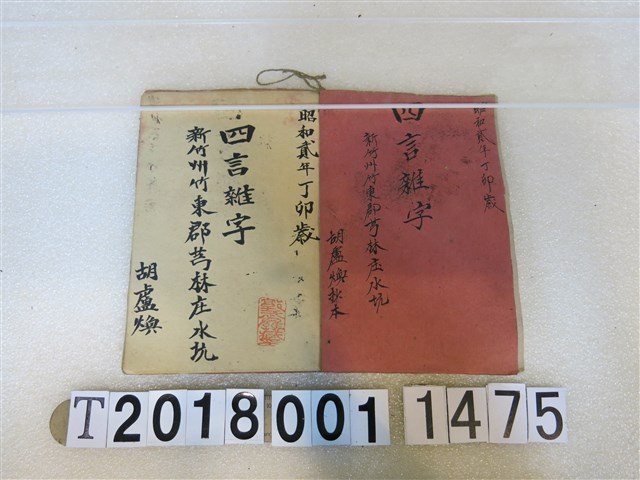 昭和貳年丁卯歲
四言雜字
新竹州竹東郡芎林庄水坑
胡盧煥秋本
昭和貳年丁卯歲
四言雜字
新竹州竹東郡芎林庄水坑
胡盧煥
T2018001 1475